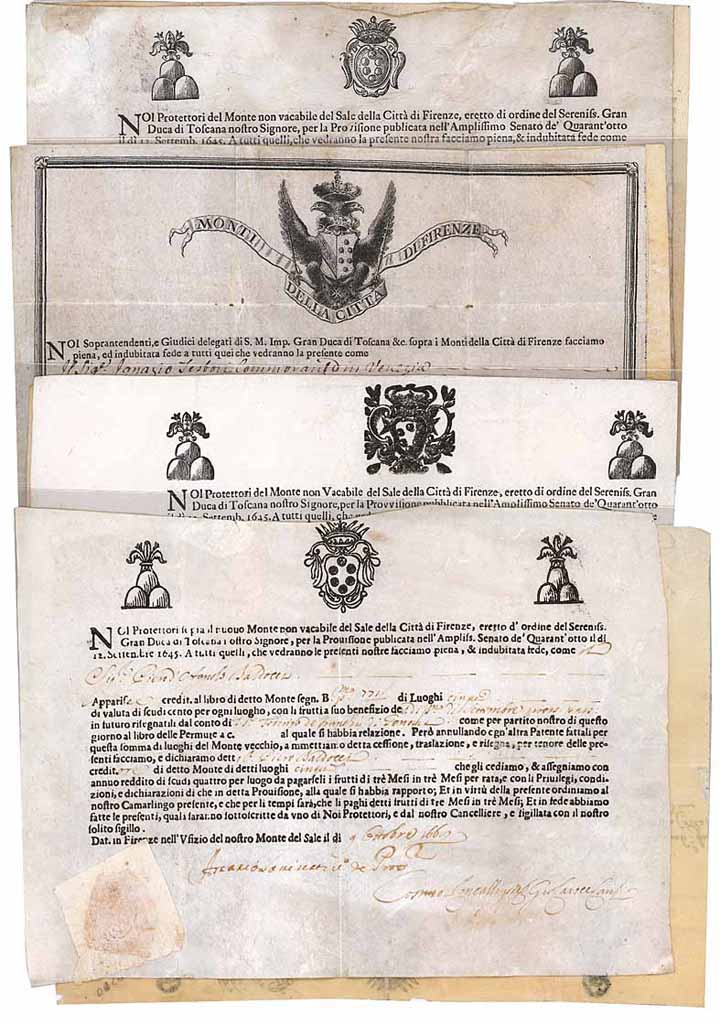 NOI Protettori del Monte non vacabile del Sale della Città di Firenze, eretto di ordine del Sereniss. Gran
Duca di Toscana nostro Signore, per la Provisione publicata nell'Amplissimo Senato de' Quarant'otto
il dì 12. Settemb. 1645. A tutti quelli, che vedranno la presente nostra facciamo piena, & indubitata fede come
MONTI DELLA CITTÀ DI FIRENZE
NOI Soprantendenti, e Giudici delegati di S. M. Imp. Gran Duca di Toscana &c. sopra i Monti della Città di Firenze facciamo
piena, ed indubitata fede a tutti quei che vedranno la presente come
Il Sig.r Ignazio in Venezia
NOI Protettori del Monte non Vacabile del Sale della Città di Firenze, eretto di ordine del Sereniss. Gran
Duca di Toscana nostro Signore, per la Provvisione publicata nell'Amplissimo Senato de' Quarant'otto
il dì 12. Settemb. 1645. A tutti quelli, che
NOI Protettori sopra il nuovo Monte non vacabile del Sale della Città di Firenze, eretto d' ordine del Sereniss.
Gran Duca di Toscana nostro Signore, per la Prouisione publicata nell'Ampliss. Senato de' Quarant'otto il dì
12. Settembre 1645. A tutti quelli, che vedranno le presenti nostre facciamo piena, & indubitata fede, come
Baldocci
Apparisce credit. al libro di detto Monte segn. B di Luoghi cinque
di valuta di scudi cento per ogni luogho, con li frutti a suo benefizio de
in futuro risegnatili dal conto di come per partito nostro di questo
giorno al libro delle Permute a c. al quale si habbia relazione. Però annullando ogn'altra Patente fattali per
questa somma di luoghi del Monte vecchio, ammettiamo detta cessione, traslazione, e risegna, per tenore delle pre-
senti facciamo, e dichiaramo dett Baldocci
creditore di detto Monte di detti luoghi cinque che gli cediamo, & assegniamo con
annuo reddito di scudi quattro per luogo da pagarseli i frutti di trè Mesi in trè Mesi per rata, e con li Priuilegi, condi-
zioni, e dichiarazioni di che in detta Prouisione, alla quale si habbia rapporto; Et in virtù della presente ordiniamo al
nostro Camarlingo presente, e che per li tempi sarà, che li paghi detti frutti di tre Mesi in trè Mesi; Et in fede abbiamo
fatte le presenti, quali saranno sottoscritte da vno di Noi Protettori, e dal nostro Cancelliere, e sigillata con il nostro
solito sigillo.
Dat. in Firenze nell'Vfizio del nostro Monte del Sale il dì